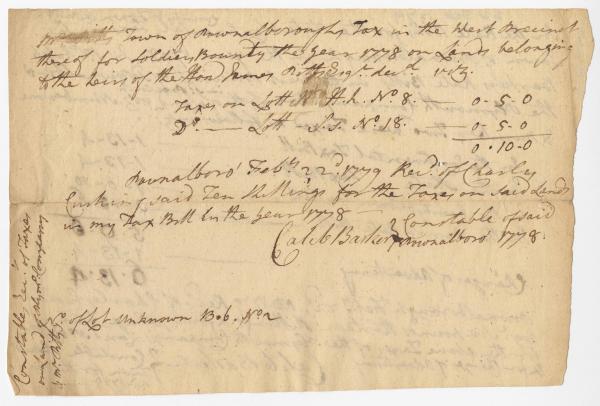 Town of Pownalboroughs Tax in the West Precinct
thereof for Soldiers Bounty the year 1778 on Lands belonging
to the heirs of the Hon.d James Esq.r dec.d viz.
Taxes on Lott H.h. No 8. — 0-5-0
Do. — Lott — S.s. No 18. — 0-5-0
0.10-0
Pownalboro' Feb.y 22.d 1779 Rec.d of Charles
Cushing said Ten Shillings for the Taxes on said Lands
in my Tax Bill in the year 1778
Caleb Barker } Constable of said
Pownalboro 1778.
of Lot Unknown Bob. No 2
Constable Rec. of Taxes
on Land of Plym.o Company